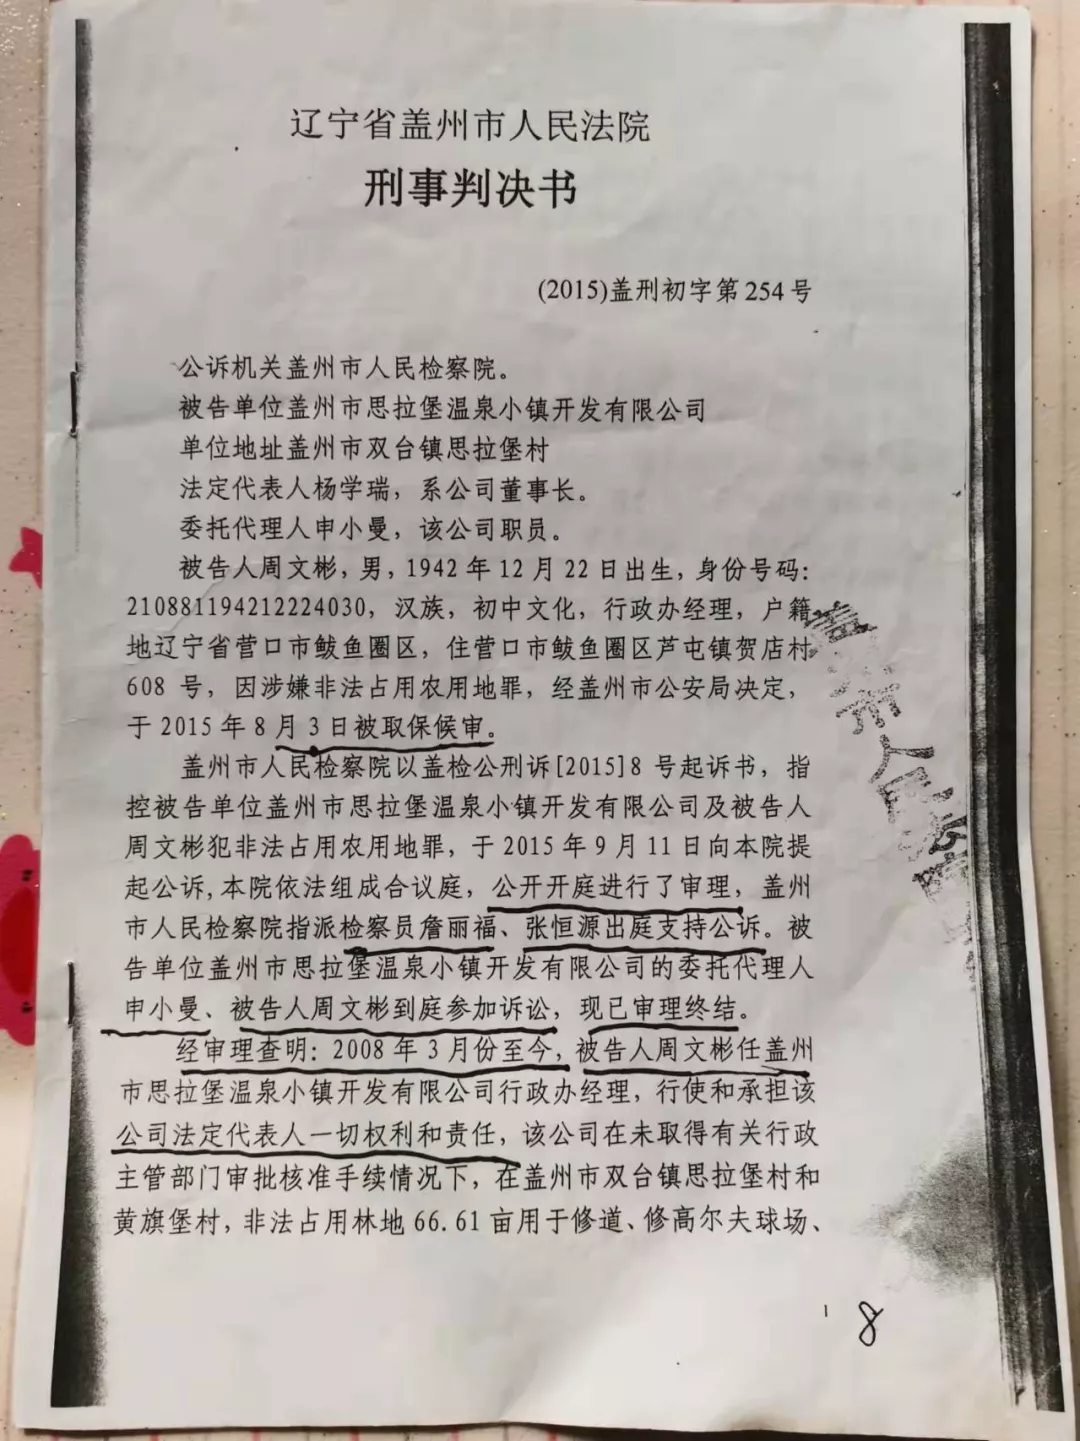 辽宁省盖州市人民法院
刑事判决书
(2015)盖刑初字第254号
公诉机关盖州市人民检察院。
被告单位盖州市思拉堡温泉小镇开发有限公司
单位地址盖州市双台镇思拉堡村
法定代表人杨学瑞，系公司董事长。
委托代理人申小曼，该公司职员。
被告人周文彬，男，1942年12月22日出生，身份号码：
210881194212224030，汉族，初中文化，行政办经理，户籍
地辽宁省营口市鲅鱼圈区，住营口市鲅鱼圈区芦屯镇贺店村
608号，因涉嫌非法占用农用地罪，经盖州市公安局决定，
于2015年8月3日被取保候审。
盖州市人民检察院以盖检公刑诉[2015]8号起诉书，指
控被告单位盖州市思拉堡温泉小镇开发有限公司及被告人
周文彬犯非法占用农用地罪，于2015年9月11日向本院提
起公诉，本院依法组成合议庭，公开开庭进行了审理，盖州
市人民检察院指派检察员詹丽福、张恒源出庭支持公诉。被
告单位盖州市思拉堡温泉小镇开发有限公司的委托代理人
申小曼、被告人周文彬到庭参加诉讼，现已审理终结。
经审理查明：2008年3月份至今，被告人周文彬任盖州
市思拉堡温泉小镇开发有限公司行政办经理，行使和承担该
公司法定代表人一切权利和责任，该公司在未取得有关行政
主管部门审批核准手续情况下，在盖州市双台镇思拉堡村和
黄旗堡村，非法占用林地66.61亩用于修道、修高尔夫球场、
盖州市人民法院
1
8